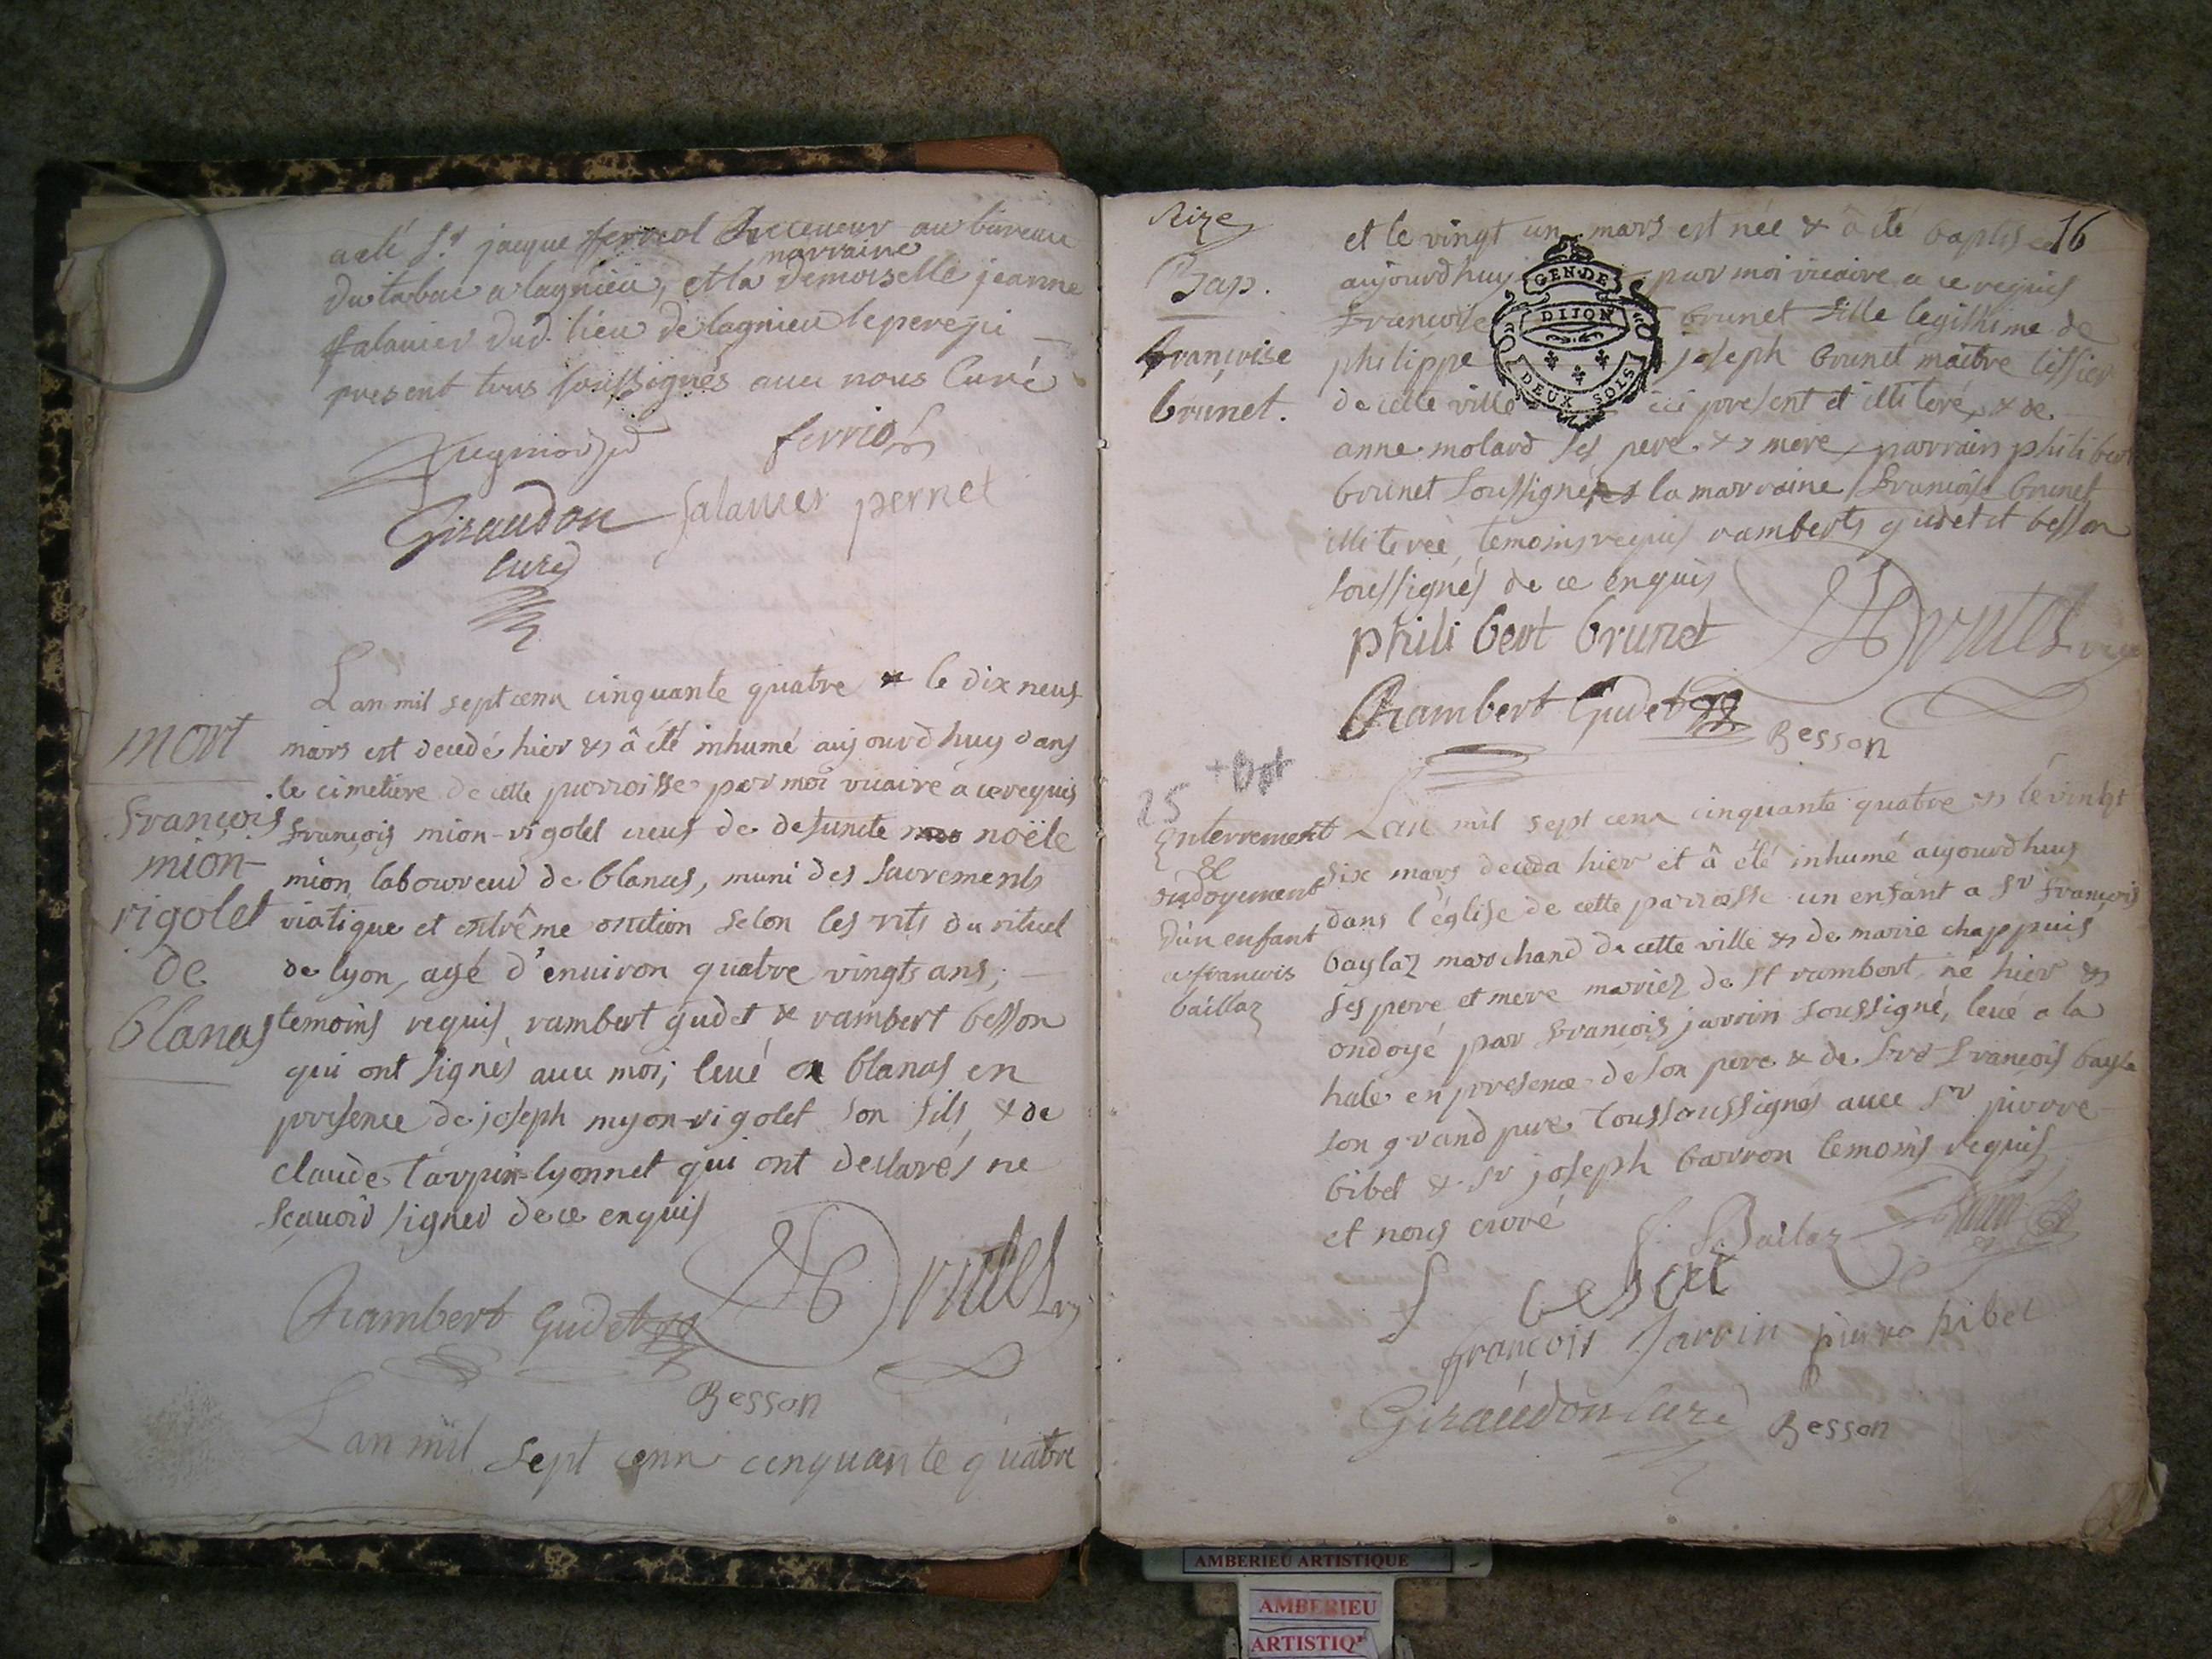 a eté Sr. jacque ferriol Receveur au bureau
du tabac a lagnieu, et la marraine demoiselle jeanne
falavier dud. lieu de lagnieu le pere ici
present tous soussignés avec nous Curé
ferriol
Giraudon falavier pernet
curé
Lan mil sept cent cinquante quatre & le dix neuf
mort
mars est decedé hier & â été inhumé aujourdhuy dans
le cimetiere de cette parroisse par moi vicaire a ce requis
François
françois mion-rigolet veuf de defuncte noële
mion-
mion laboureur de blanas, muni des sacrements
rigolet
viatique et extrême onction selon les rits du rituel
de
de lyon, agé d'environ quatre vingts ans,
blanas
temoins requis rambert gudet & rambert besson
qui ont signés avec moi, levé a blanas en
presence de joseph myon-rigolet son fils, & de
claude tarpin-lyonnet qui ont declarés ne
sçavoir signer de ce enquis
Rambert Gudet
Besson
Lan mil sept cent cinquante quatre
16
Seize
et le vingt un mars est née & â été baptisée
Bap.
aujourdhuy par moi vicaire a ce requis
Françoise brunet fille legithime de
françoise
philippe joseph brunet maître tissier
brunet.
de cette ville ici present et illiteré, & de
anne molard ses pere & mere, parrain philibert
brunet soussigné & la marraine françoise brunet
illiterée, temoins requis ramberts gudet et besson
soussignés de ce enquis
GEN. DE
DIJON
DEUX SOLS
philibert brunet
Rambert Gudet
Besson
25
Lan mil sept cent cinquante quatre & le vingt
Enterrement
&
six mars deceda hier et â été inhumé aujourdhuy
ondoyement
dans l'église de cette parroisse un enfant a Sr françois
d'un enfant
baylaz marchand de cette ville & de marie chappuis
a françois
ses pere et mere mariez de St rambert, né hier &
baillaz
ondoyé par françois jarrin soussigné, levé a la
hale en presence de son pere & de Sr françois bayla
son grand pere tous soussignés avec Sr pierre
bibet & Sr joseph barron temoins requis
et nous curé
f. Bailaz
françois Jarrin pierre bibet
Giraudon curé Besson
AMBERIEU ARTISTIQUE
AMBERIEU
ARTISTIQ